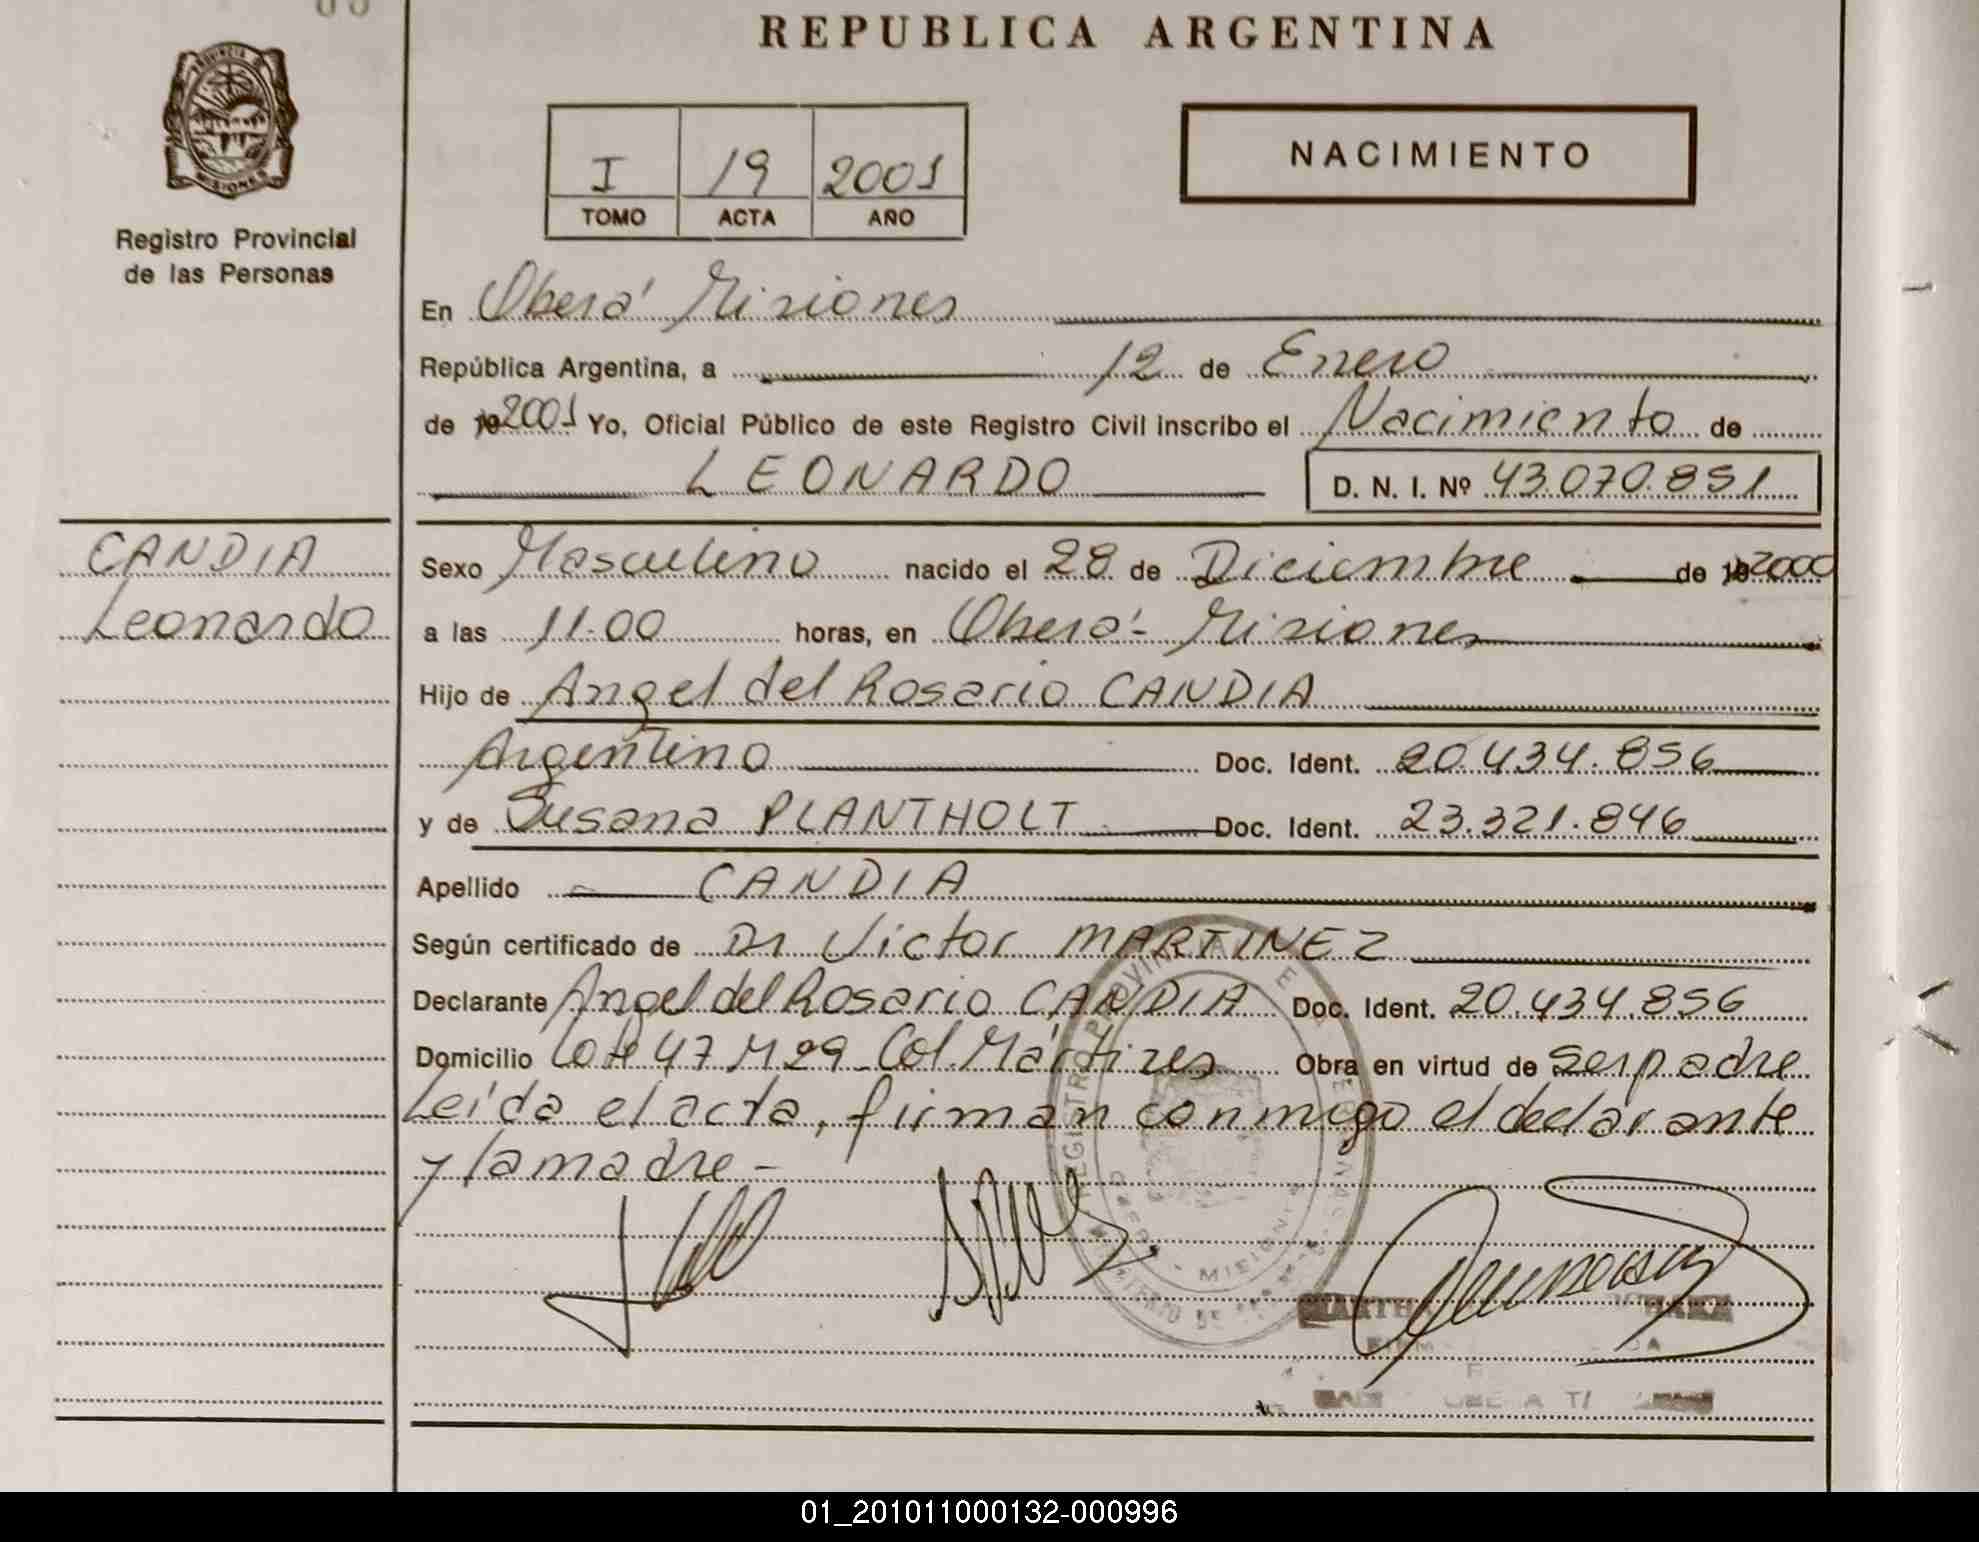 REPUBLICA ARGENTINA
PROVINCIA DE
MISIONES
Registro Provincial
de las Personas
I 19 2001
TOMO ACTA AÑO
NACIMIENTO
En Oberá Misiones
República Argentina, a 12 de Enero
de 19 2001 Yo, Oficial Público de este Registro Civil inscribo el Nacimiento de
LEONARDO D. N. I. Nº 43.070.851
CANDIA
Leonardo
Sexo Masculino nacido el 28 de Diciembre de 19 2000
a las 11.00 horas, en Oberá - Misiones
Hijo de Angel del Rosario CANDIA
Argentino Doc. Ident. 20.434.856
y de Susana PLANTHOLT Doc. Ident. 23.321.846
Apellido CANDIA
Según certificado de Dr Victor MARTINEZ
Declarante Angel del Rosario CANDIA Doc. Ident. 20.434.856
Domicilio Lote 47 M 29 Col. Mártires Obra en virtud de ser padre
Leída el acta, firman conmigo el declarante
y la madre -
MISIONES
01_201011000132-000996